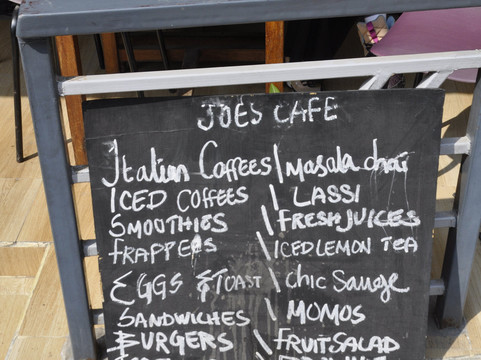 JOES CAFE
Italian Coffees / Masala chai
ICED COFFEES \ LASSI
SMOOTHIES \ FRESH JUICES
FRAPPERS \ ICED LEMON TEA
EGGS & TOAST \ Chic Sausge
SANDWICHES \ MOMOS
BURGERS \ FRUIT SALAD